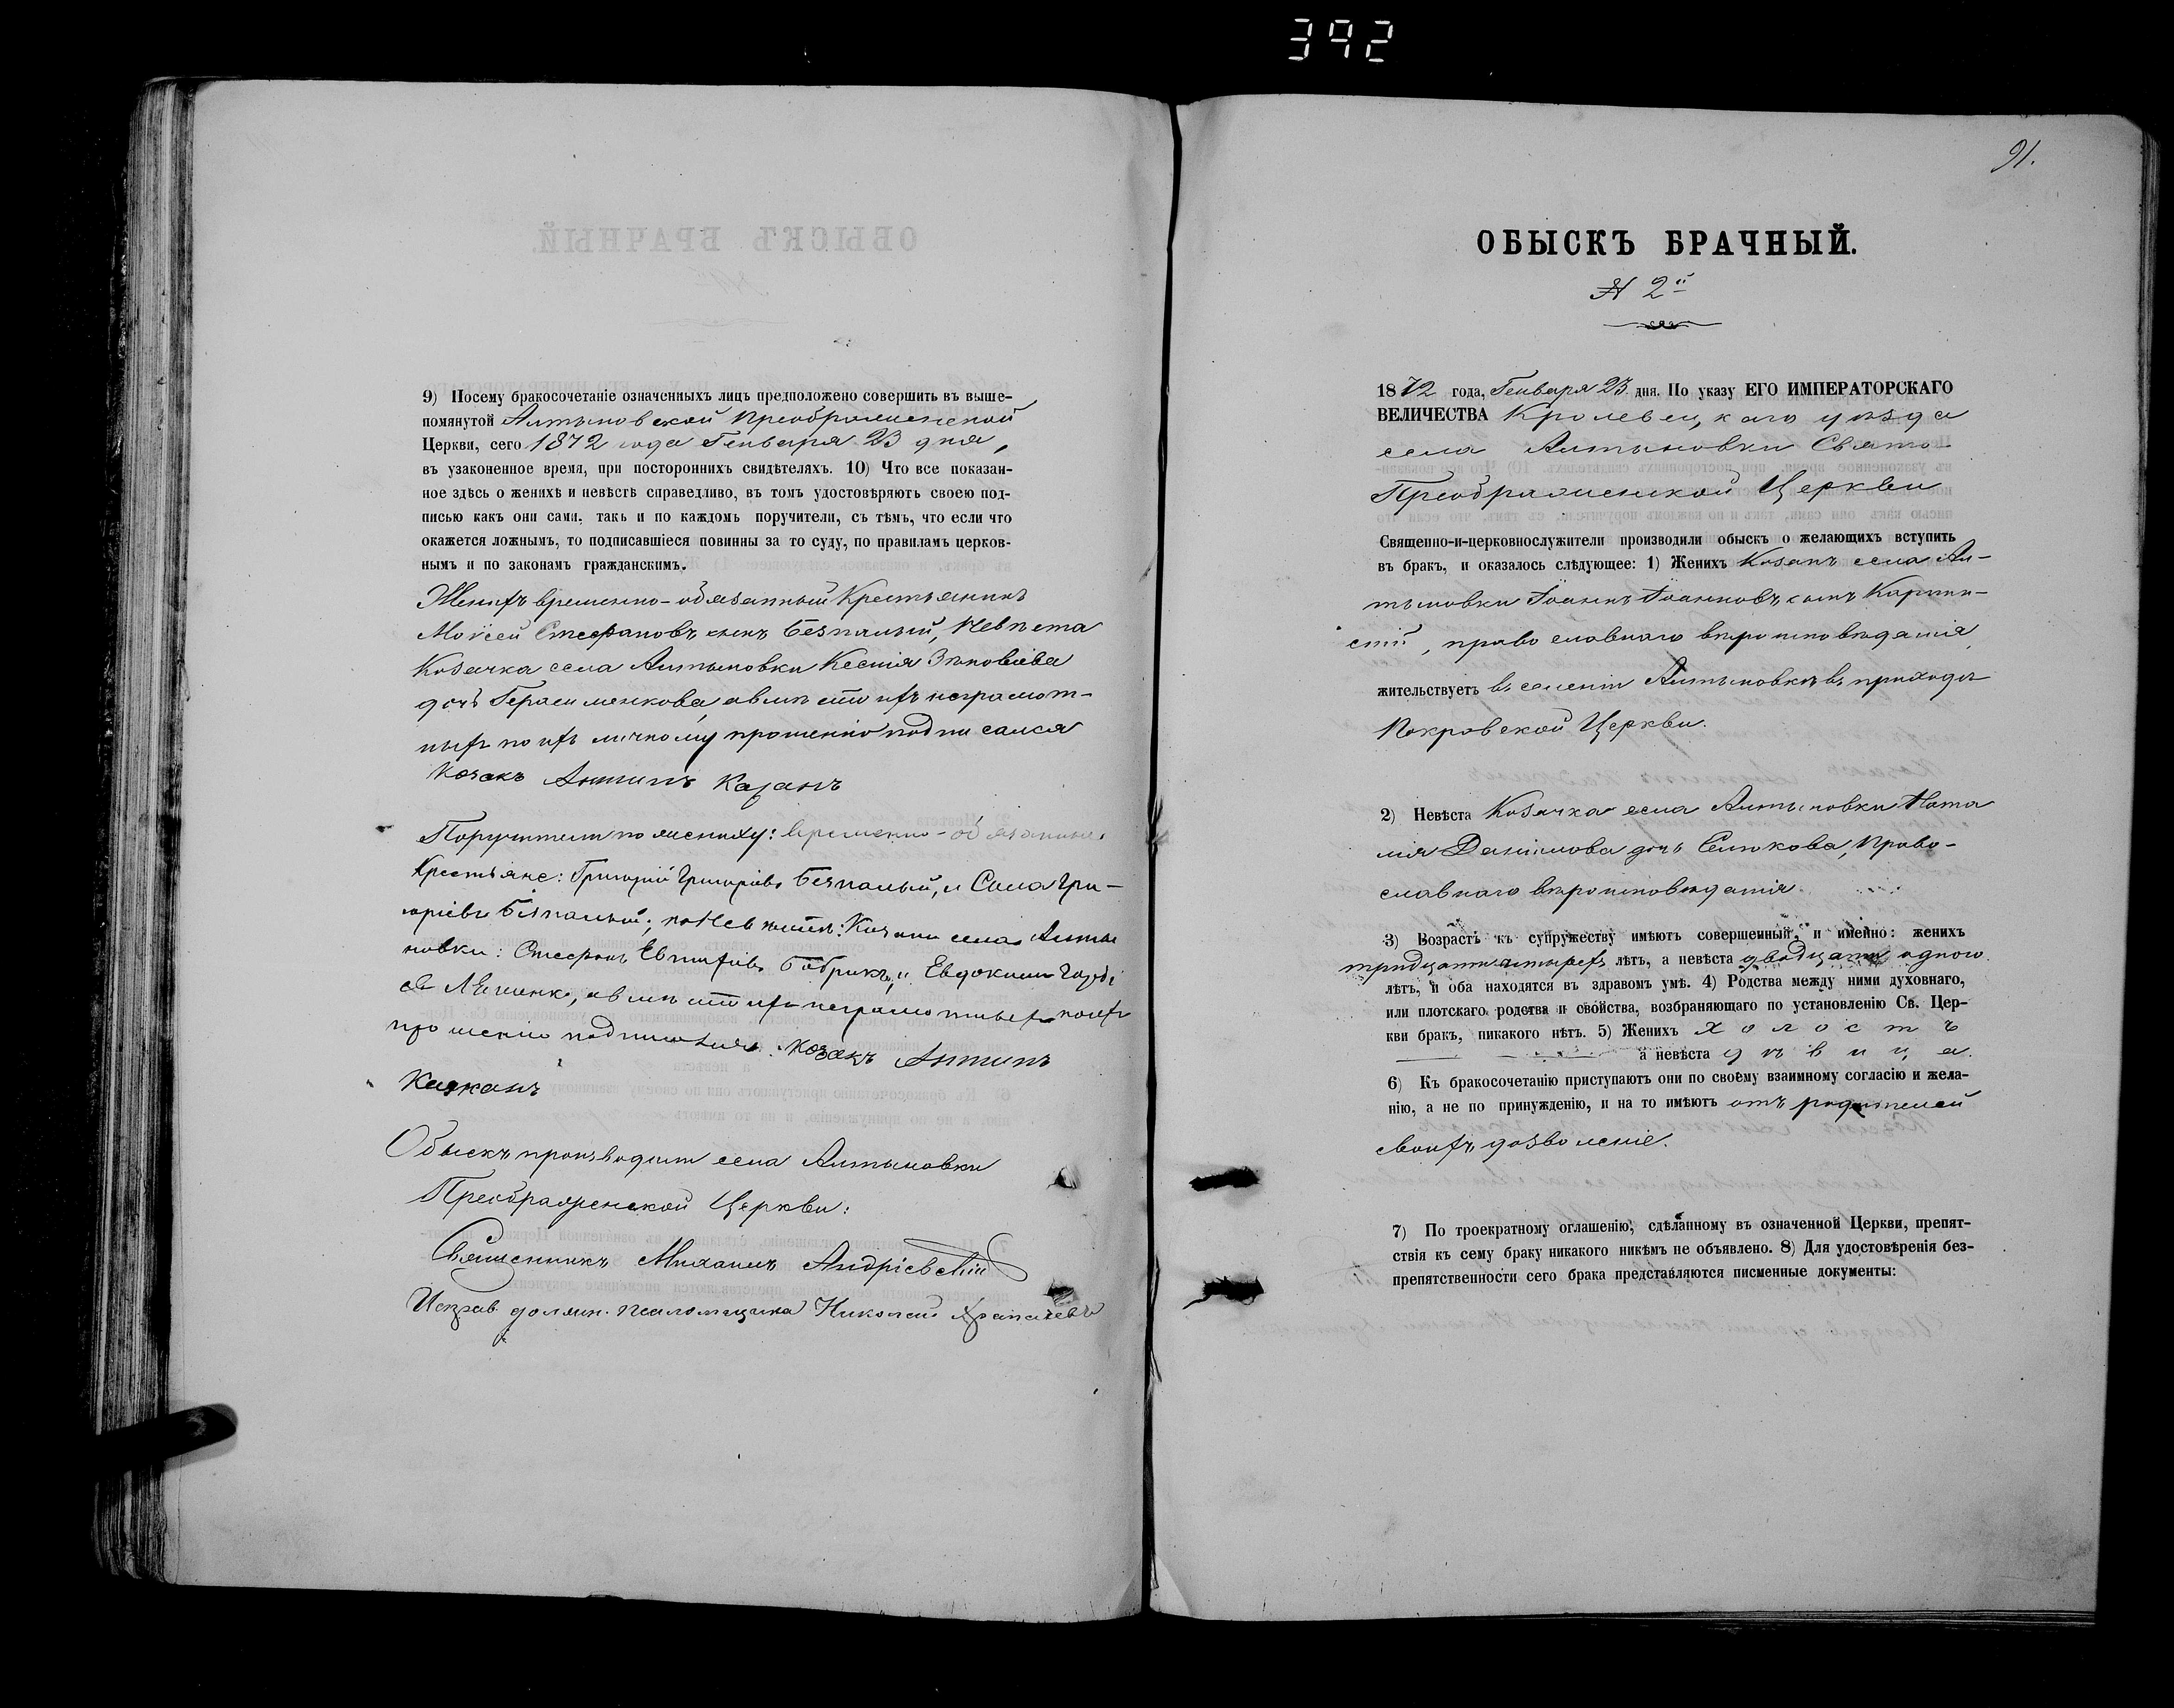 392
9) Посему бракосочетаніе означенныхъ лицъ предположено совершить въ выше-
помянутой Алтыновской Преображенской
Церкви, сего 1872 года Генваря 23 дня,
въ узаконенное время, при постороннихъ свидѣтеляхъ. 10) Что все показан-
ное здѣсь о женихѣ и невѣстѣ справедливо, въ томъ удостовѣряютъ своею под-
писью какъ они сами, такъ и по каждомъ поручители, съ тѣмъ, что если что
окажется ложнымъ, то подписавшіеся повинны за то суду, по правиламъ церков-
нымъ и по законамъ гражданскимъ.
Женихъ временно-обязанный Крестьянинъ
Моѵсей Стефановъ сынъ Безпалый, Невѣста
Козачка села Алтыновки Ксенія Зѣновіева
дочь Герасименкова, а вмѣсто ихъ неграмот-
ныхъ по ихъ личному прошенію подписался
Козакъ Антипъ Казанъ
Поручители по жениху: временно-обязанные
Крестьяне: Григорій Григоріевъ Безпалый, и Сила Гри-
горіевъ Безпалый; по Невѣстѣ: Козаки села Алты
новки: Стефанъ Евтифіевъ Бобрикъ, и Евдокимъ
а вмѣсто ихъ неграмотныхъ по ихъ
прошенію подписался: Козакъ Антипъ
Казканъ
Обыскъ производили села Алтыновки
Преображенской Церкви:
Священникъ Михаилъ Андріевскій
Исправ. должн. псаломщика Николай
91.
ОБЫСКЪ БРАЧНЫЙ.
№ 2й
1872 года, Генваря 23 дня. По указу ЕГО ИМПЕРАТОРСКАГО
ВЕЛИЧЕСТВА Кролевецкаго уѣзда
села Алтыновки Свято-
Преображенской Церкви
Священно-и-церковнослужители производили обыскъ о желающихъ вступить
въ бракъ, и оказалось слѣдующее: 1) Женихъ Козакъ села Ал-
тыновки Іоаннъ Іоанновъ сынъ
православнаго вѣроисповѣданія,
жительствуетъ въ селеніи Алтыновкѣ въ приходѣ
Покровской Церкви.
2) Невѣста Козачка села Алтыновки Ната
лія Даніилова дочь Сылкова, Право-
славнаго вѣроисповѣданія.
3) Возрастъ къ супружеству имѣютъ совершенный, и именно: женихъ
тридцати четырехъ лѣтъ, а невѣста двадцати одного
лѣтъ, и оба находятся въ здравомъ умѣ. 4) Родства между ними духовнаго,
или плотскаго родства и свойства, возбраняющаго по установленію Св. Цер-
кви бракъ, никакого нѣтъ. 5) Женихъ холостъ
а невѣста дѣвица.
6) Къ бракосочетанію приступаютъ они по своему взаимному согласію и жела-
нію, а не по принужденію, и на то имѣютъ отъ родителей
своихъ дозволеніе.
7) По троекратному оглашенію, сдѣланному въ означенной Церкви, препят-
ствія къ сему браку никакого никѣмъ не объявлено. 8) Для удостовѣренія без-
препятственности сего брака представляются писменные документы: